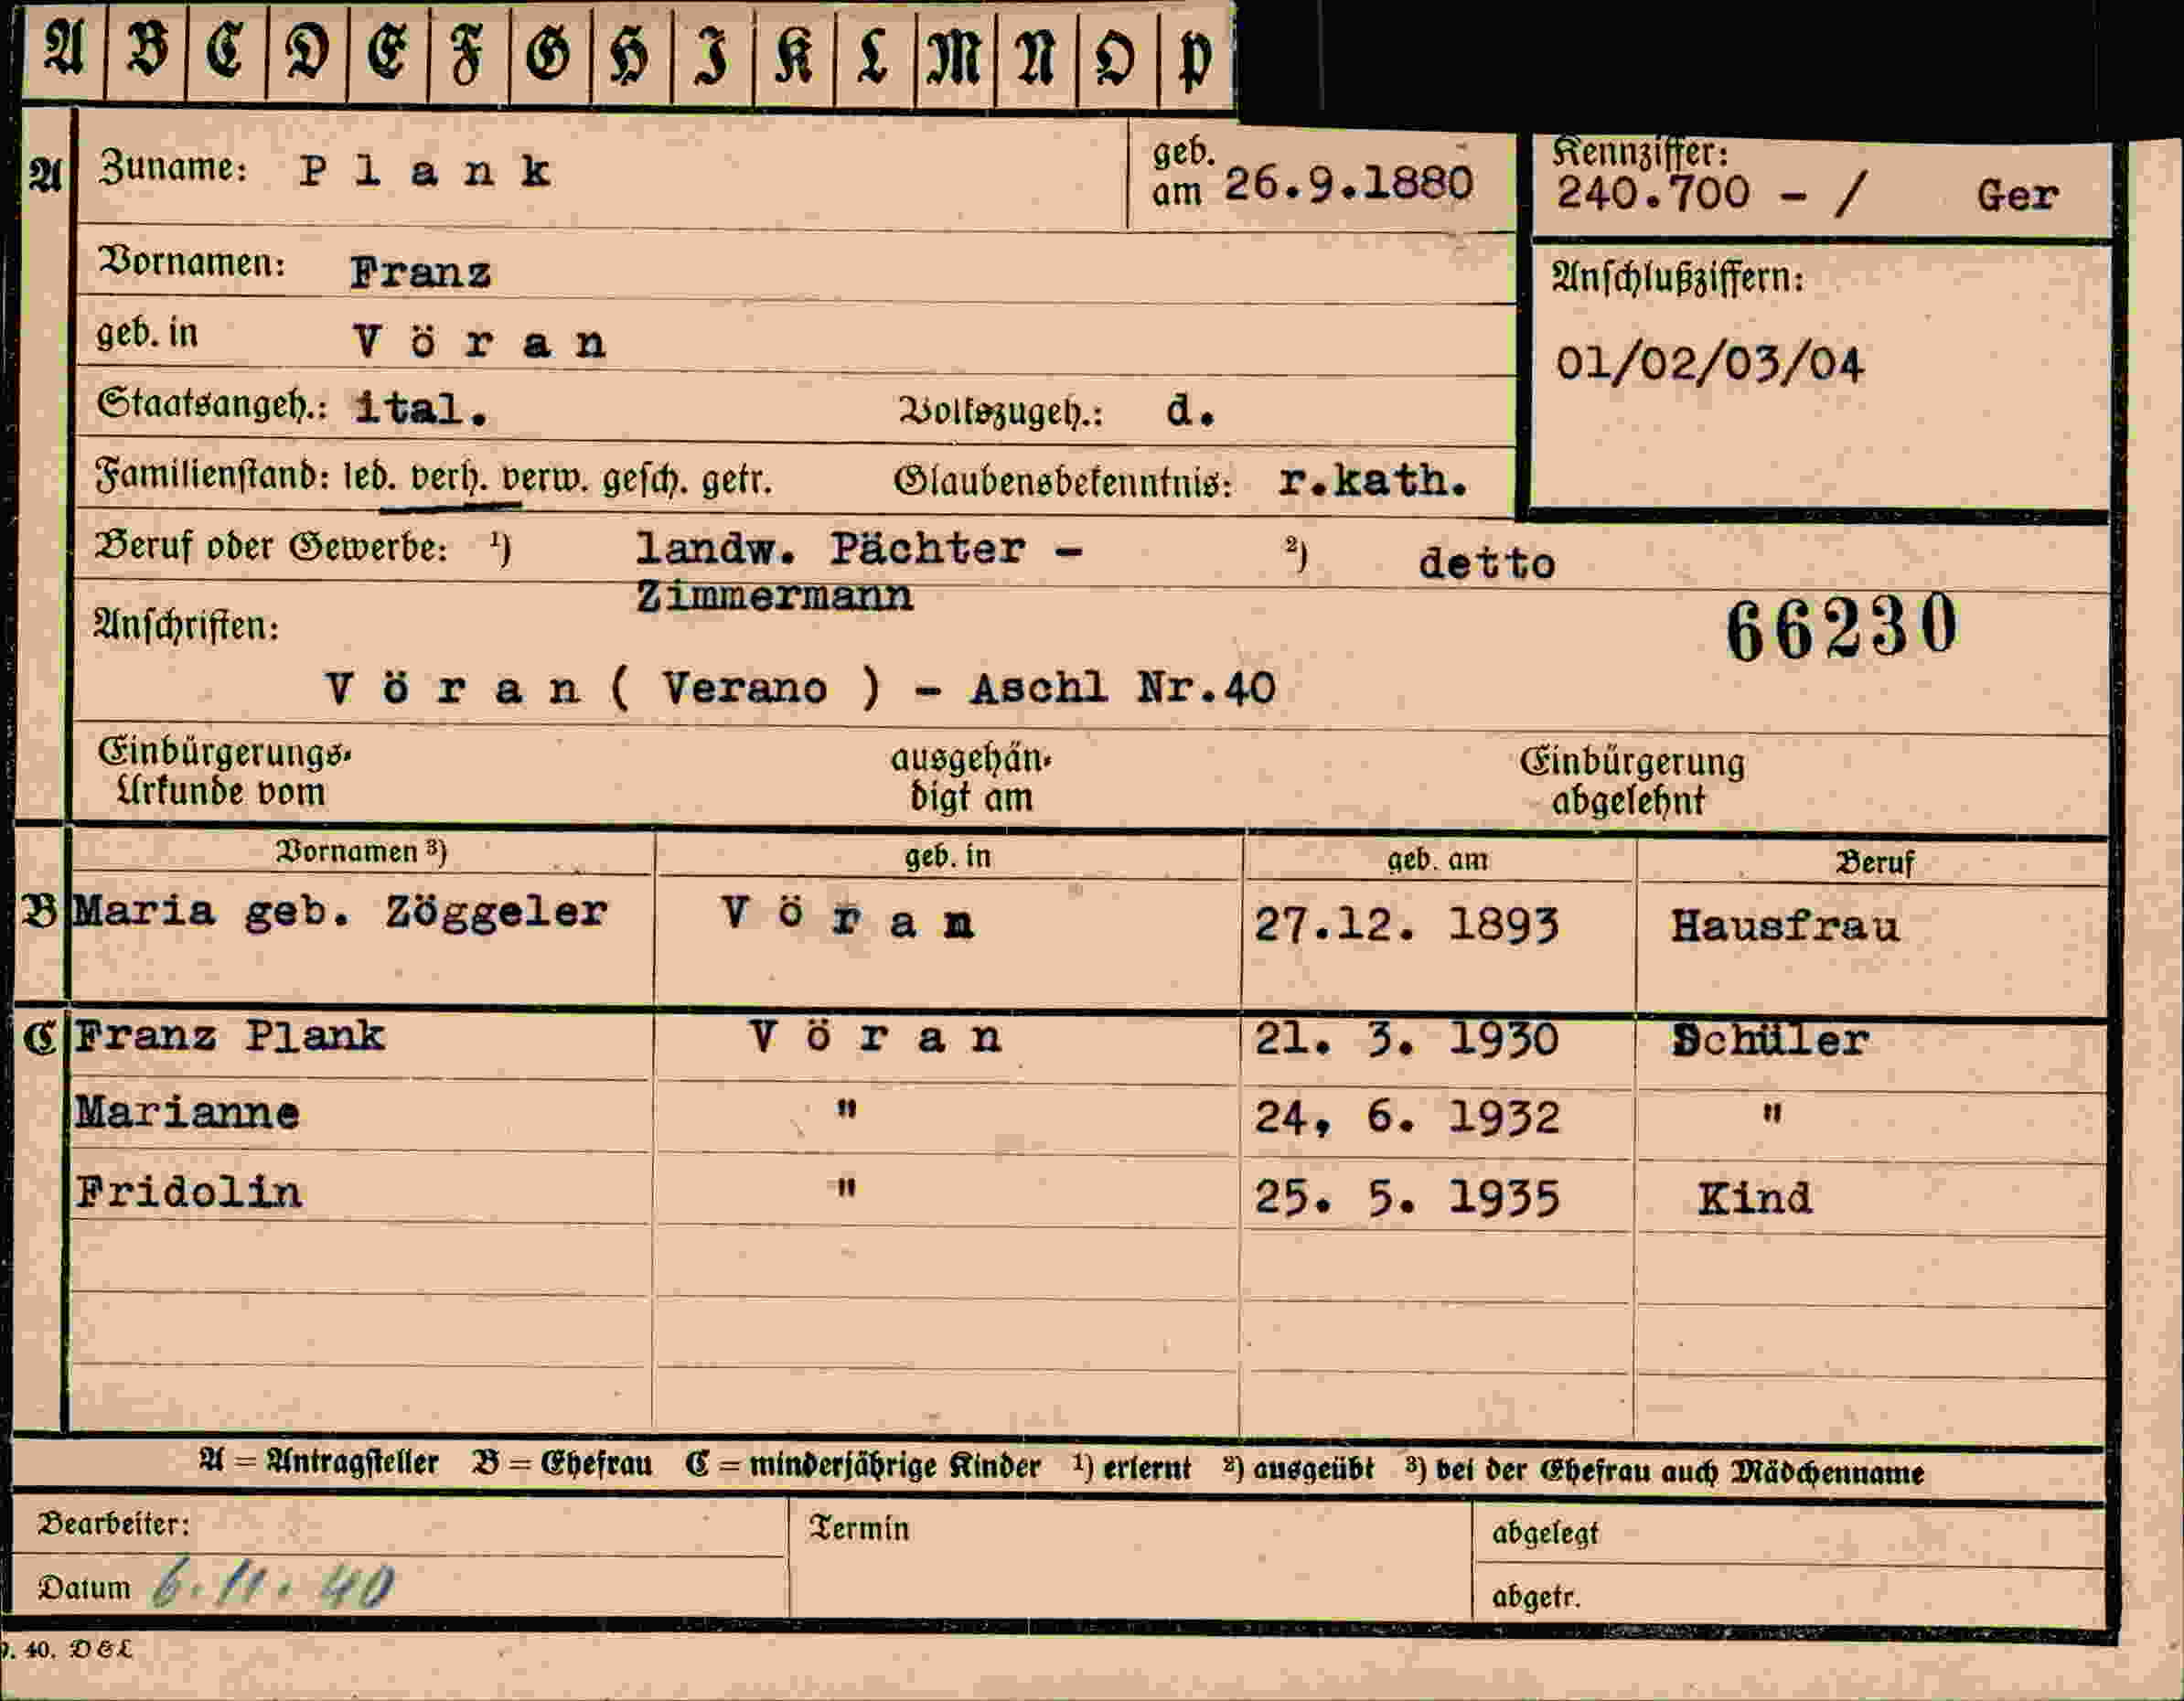 A B C D E F G H I K L M N O P
A Zuname: Plank geb. am 26.9.1880 Kennziffer: 240.700 - / Ger
Vornamen: Franz
Anschlußziffern:
geb. in Vöran
01/02/03/04
Staatsangeh.: ital. Volkszugeh.: d.
Familienstand: led. verh. verw. gesch. getr. Glaubensbekenntnis: r.kath.
Beruf oder Gewerbe: 1) landw. Pächter - 2) detto
Zimmermann
Anschriften: 66230
Vöran ( Verano ) - Aschl Nr.40
Einbürgerungs- ausgehän- Einbürgerung
Urkunde vom digt am abgelehnt
Vornamen 3) geb. in geb. am Beruf
B Maria geb. Zöggeler Vöran 27.12. 1893 Hausfrau
C Franz Plank Vöran 21. 3. 1930 Schüler
Marianne " 24, 6. 1932 "
Fridolin " 25. 5. 1935 Kind
A = Antragsteller B = Ehefrau C = minderjährige Kinder 1) erlernt 2) ausgeübt 3) bei der Ehefrau auch Mädchenname
Bearbeiter: Termin abgelegt
Datum 6.11.40 abgetr.
40. D&L